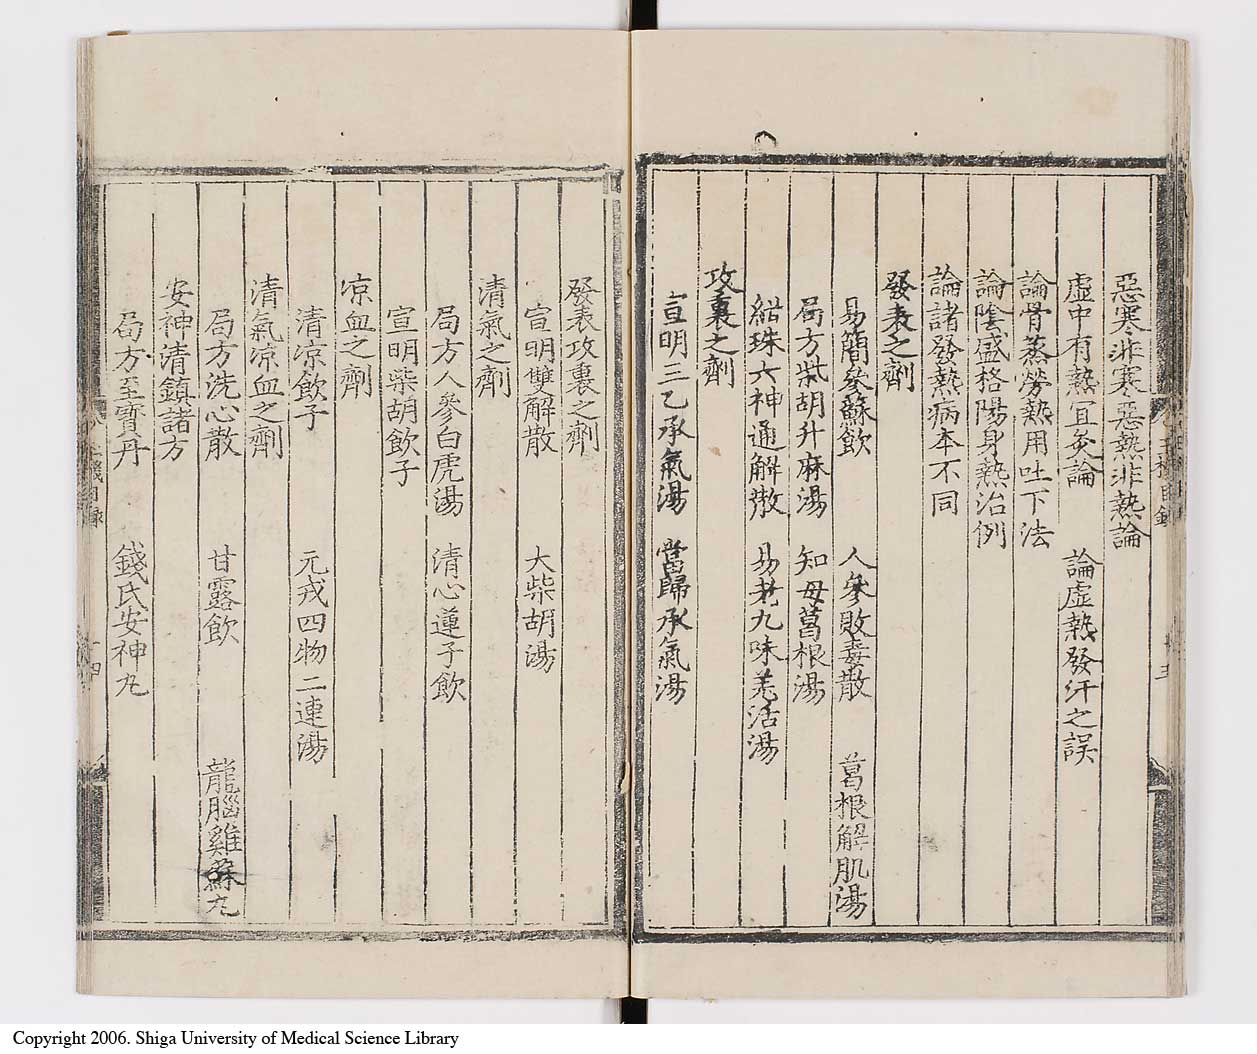 惡寒非寒惡熱非熱論
虛中有熱宜灸論　論虛熱發汗之誤
論骨蒸勞熱用吐下法
論陰盛格陽身熱治例
論諸發熱病本不同
發表之劑
易簡參蘇飲　人參敗毒散　葛根解肌湯
局方柴胡升麻湯　知母葛根湯
紺珠六神通解散　易老九味羌活湯
攻裏之劑
宣明三乙承氣湯　當歸承氣湯
發表攻裏之劑
宣明雙解散　大柴胡湯
清氣之劑
局方人參白虎湯　清心蓮子飲
宣明柴胡飲子
凉血之劑
清凉飲子　元戎四物二連湯
清氣凉血之劑
局方洗心散　甘露飲　龍腦雞蘇丸
安神清鎮諸方
局方至寶丹　錢氏安神丸
Copyright 2006. Shiga University of Medical Science Library